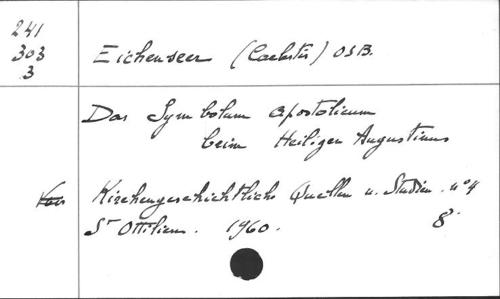 241
303
3
Eichenseer (Caelestis) OSB.
Das Symbolum apostolicum
beim Heiligen Augustinus
Kirchengeschichtliche Quellen u. Studien. n° 4
St Ottilien. 1960. 8°